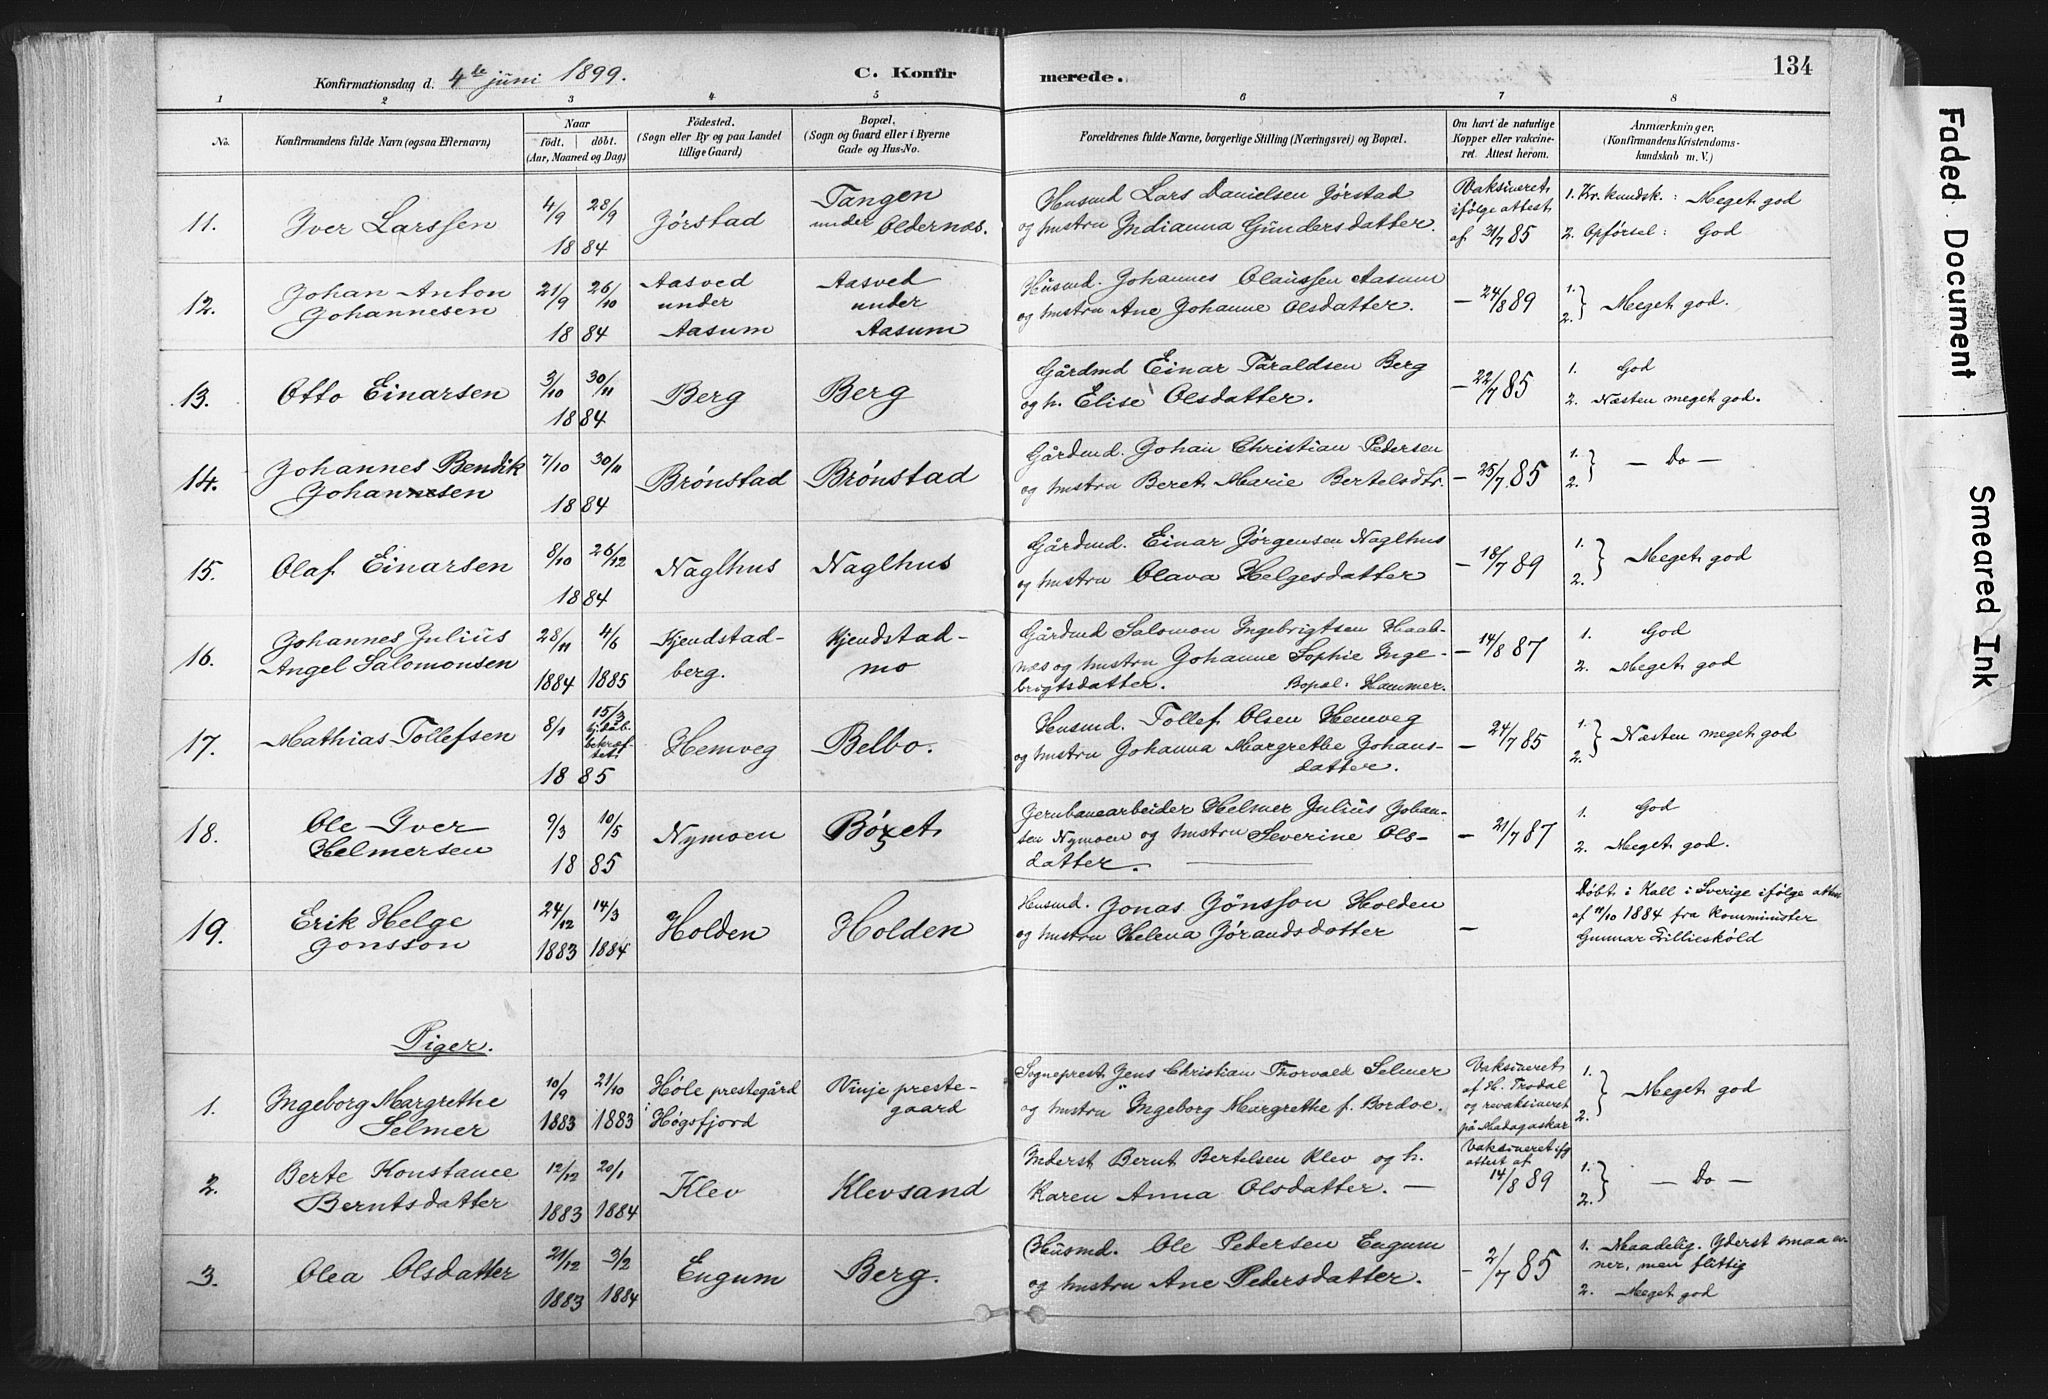 134
Konfirmationsdag d. 4de juni 1899.
C. Konfirmerede.
1 2 3 4 5 6 7 8
No.
Konfirmandens fulde Navn (ogsaa Efternavn)
Naar
født. døbt.
(Aar, Maaned og Dag)
Fødested.
(Sogn eller By og paa Landet
tillige Gaard)
Bopæl.
(Sogn og Gaard eller i Byerne
Gade og Hus-No.
Forældrenes fulde Navne, borgerlige Stilling (Næringsvei) og Bopæl.
Om havt de naturlige
Kopper eller vakcine-
ret. Attest herom.
Anmærkninger.
(Konfirmandens Kristendoms-
kundskab m. V.)
11. Iver Larssen 4/9 28/9 1884 Jørstad
Tangen
under Oldernæs.
Husmd Lars Danielsen Jørstad
og hustru Indianna Gundersdatter.
Vaksineret
ifølge attest
af 31/7 85
1. Kr. kundsk.: Meget god
2. Opførsel: God
12. Johan Anton
Johannesen
21/9 26/10 1884
Aasved
under
Aasum
Aasved
under
Aasum
Husmd. Johannes Olaussen Aasum
og hustru Ane Johanne Olsdatter.
— 24/8 89
1. 2. } Meget god.
13. Otto Einarsen 3/10 30/11 1884 Berg Berg
Gårdmd Einar Taraldsen Berg
og h. Elise Olsdatter.
— 22/7 85
1. God
2. Næsten meget god.
14. Johannes Bendik
Johansen
7/10 30/11 1884 Brønstad Brønstad
Gårdmd. Johan Christian Pedersen
og hustru Beret Marie Bertelsdtr.
— 25/7 85
1. 2. } — Do —
15. Olaf Einarsen 8/10 26/12 1884 Naglhus Naglhus
Gårdmd. Einar Jørgensen Naglhus
og hustru Olava Helgesdatter
— 18/7 89
1. 2. } Meget god
16. Johannes Julius
Angel Salomonsen
28/11 4/6
1884 1885
Kjendstad-
berg.
Kjendstad-
mo
Gårdmd Salomon Ingebrigtsen Haab-
næs og hustru Johanne Sophie Inge-
brigtsdatter. Bopæl: Hammer.
— 14/8 87
1. God
2. Meget god
17. Mathias Tollefsen 8/1 15/3
hj.dåb.
bekræf-
tet.
1885
Hemveg Belbo.
Husmd. Tollef Olsen Hemveg
og hustru Johanna Margrethe Johans-
datter.
— 24/7 85
1. 2. } Næsten meget god
18. Ole Iver
Helmersen
9/3 10/5 1885 Nymoen Bøzet
Jernbanearbeider Helmer Julius Johan-
sen Nymoen og hustru Severine Ols-
datter. —
— 21/7 87
1. God
2. Meget god.
19. Erik Helge
Jonsson
24/12 14/3
1883 1884
Holden Holden
Husmd. Jonas Jönsson Holden
og hustru Helena Jörandsdotter
—
Døbt i Kall i Sverige ifølge attest
af 11/10 1884 fra Komminister
Gunnar Lillieskøld
Piger.
1. Ingeborg Margrethe
Selmer
10/9 21/10
1883 1883
Høle prestegård
i Høgsfjord
Vinje preste-
gaard
Sogneprest Jens Christian Thorvald Selmer
og hustru Ingeborg Margrethe f. Bordoe.
Vaksineret
af H. Trodal
og revaksineret
på Madagaskar
1. 2. } Meget god
2. Berte Konstance
Berntsdatter
12/12 20/1
1883 1884
Klev Klevsand
Inderst Bernt Bertelsen Klev og h.
Karen Anna Olsdatter. —
Vaksineret ifg
attest af
14/8 89
1. 2. } — Do —
3. Olea Olsdatter
21/12 3/2
1883 1884
Engum Berg.
Husmd. Ole Pedersen Engum
og hustru Ane Pedersdatter.
— 2/7 85
1. Maadelig. Yderst smaa ev-
ner, men flittig
2. Meget god
Faded Document
Smeared Ink